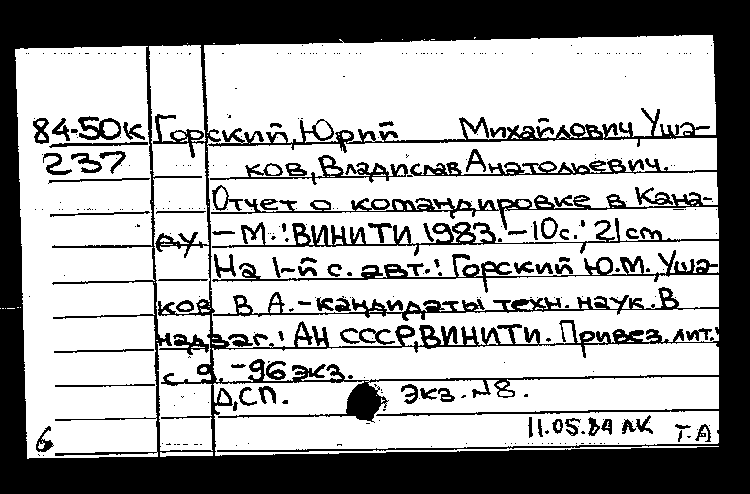 84-50К Горский, Юрий Михайлович, Уша-
237 ков, Владислав Анатольевич.
Отчет о командировке в Кана-
е.у. - М.: ВИНИТИ, 1983. - 10с.; 21 cm
На 1-й с. авт.: Горский Ю.М., Уша-
ков В А. - кандидаты техн. наук. В
надзаг.: АН СССР, ВИНИТИ. Привез. лит.:
с. 9. - 96 экз.
Д,СП. Экз. N8.
11.05.84 ЛК Т.А.
6